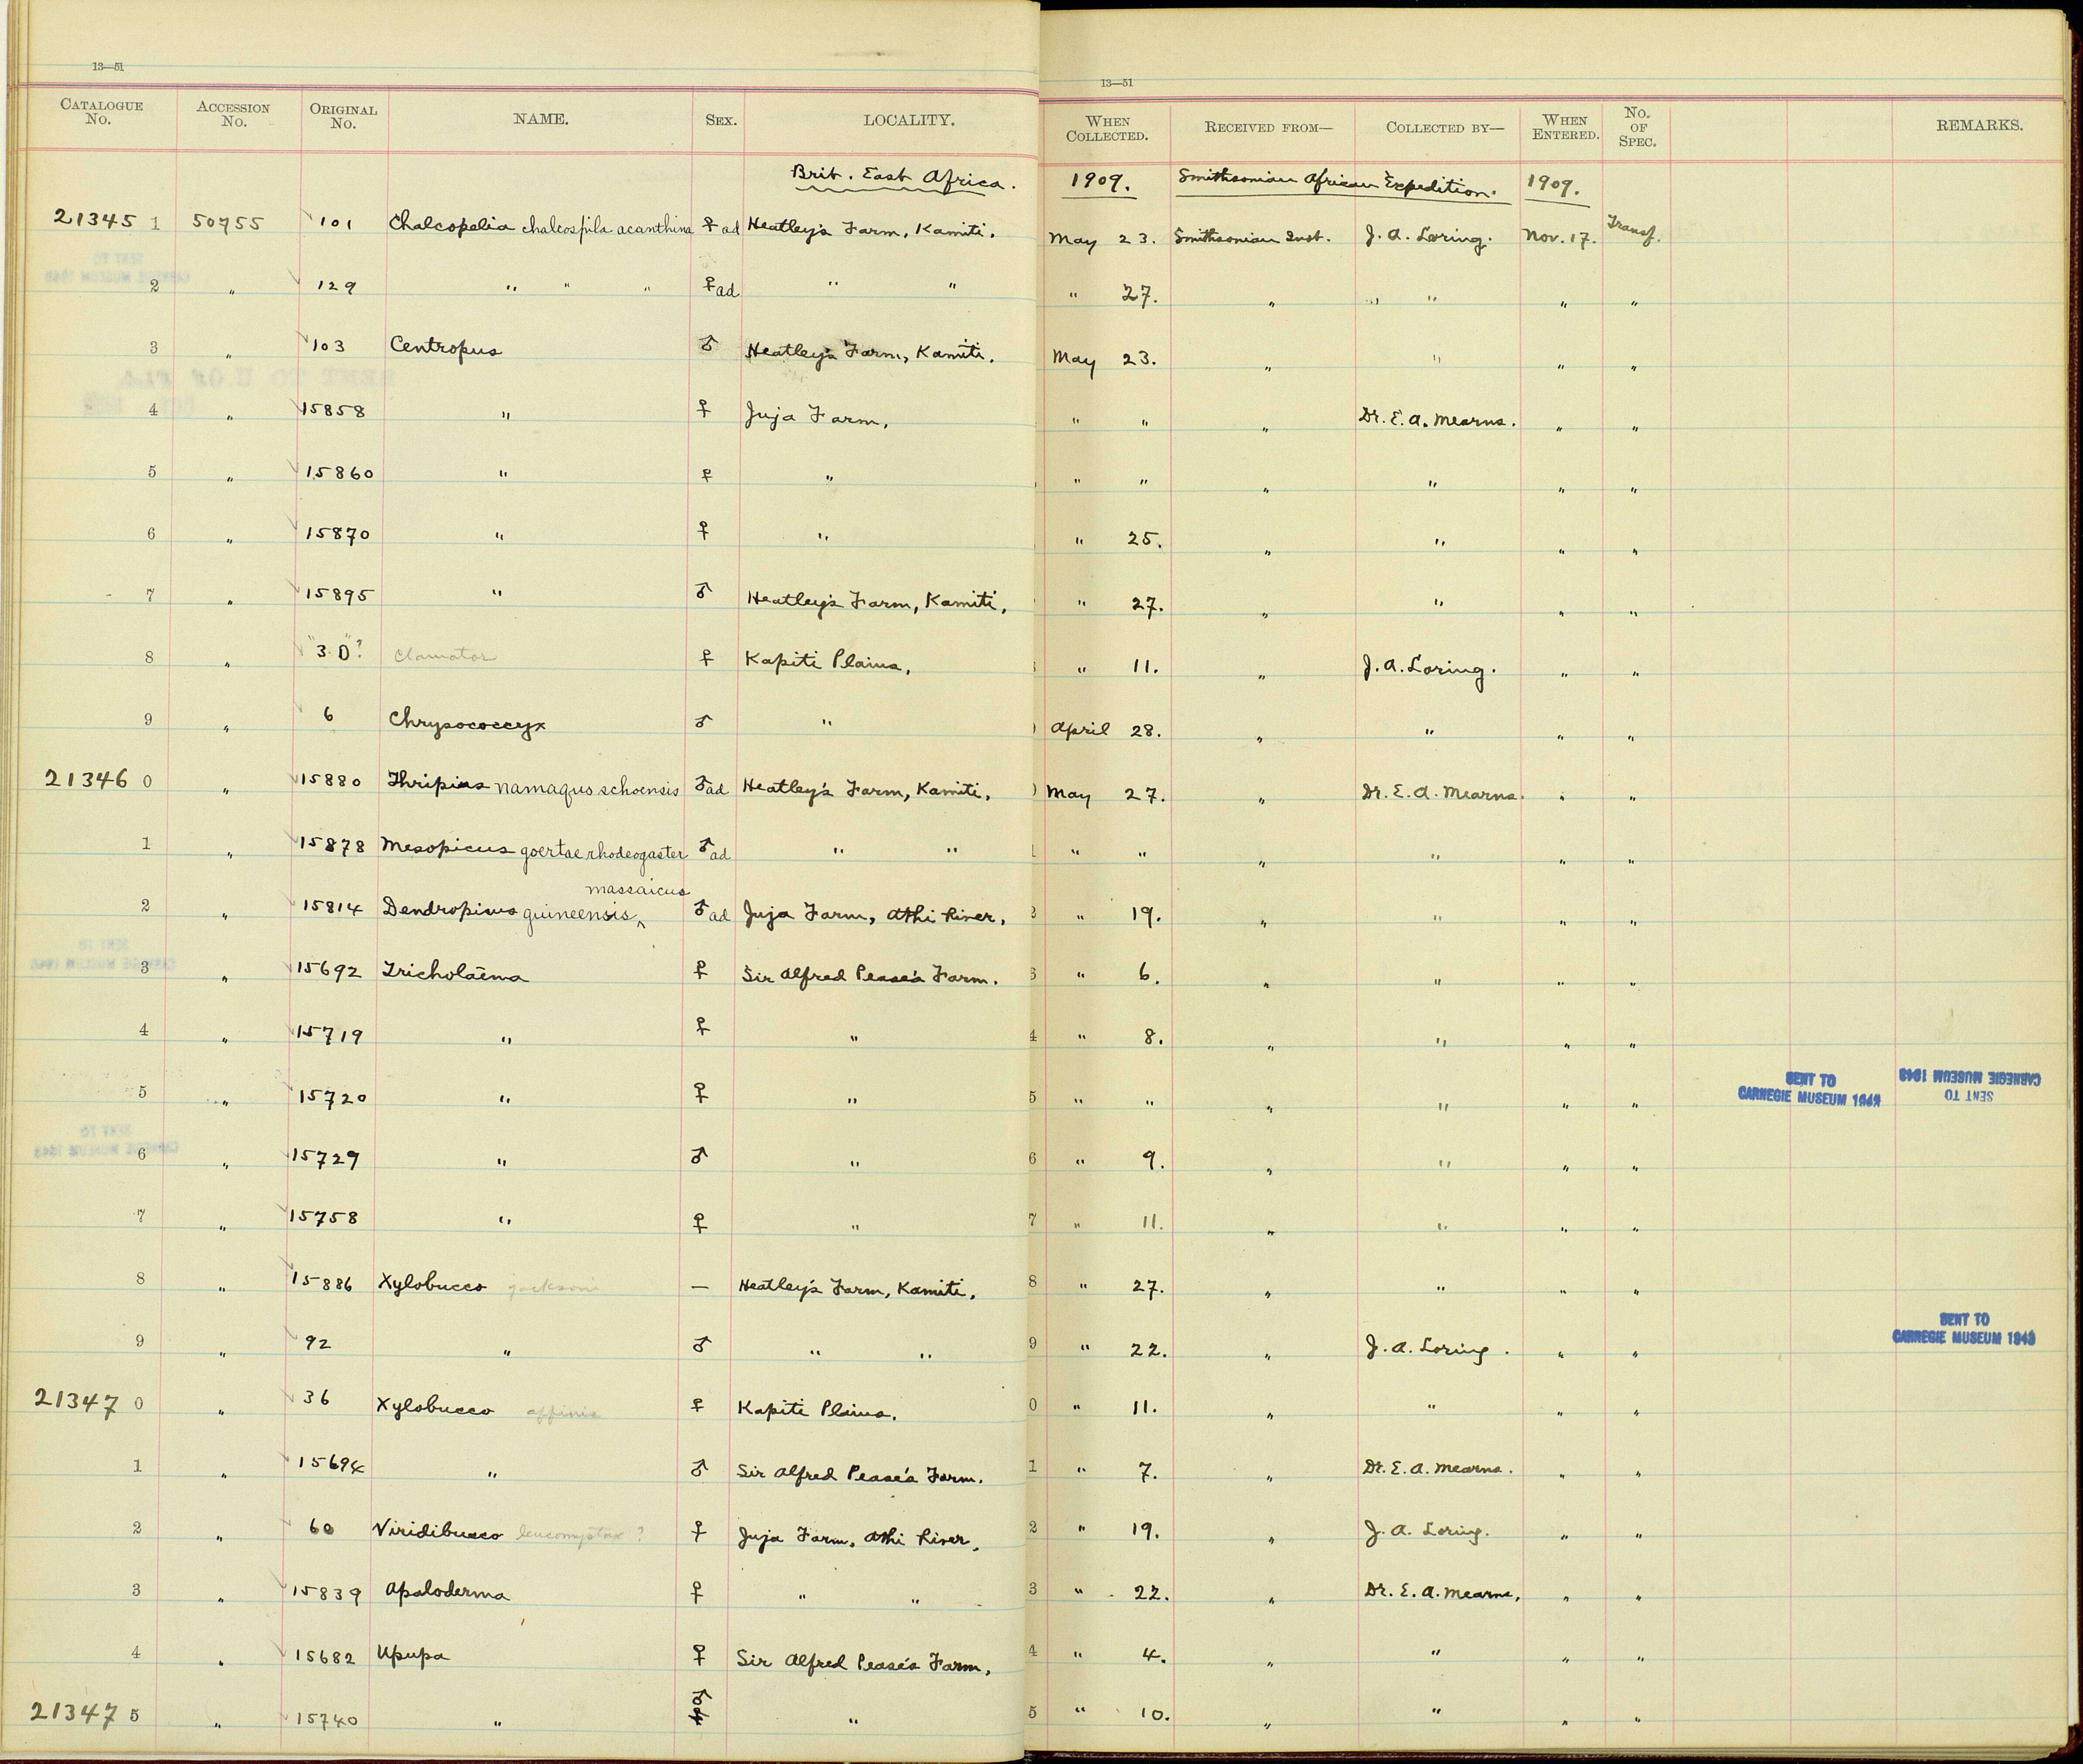 13—51
13—51
CATALOGUE No. ACCESSION No. ORIGINAL No. NAME. SEX. LOCALITY. WHEN COLLECTED. RECEIVED FROM— COLLECTED BY— WHEN ENTERED. No. OF SPEC. REMARKS.
Brit. East Africa. 1909. Smithsonian African Expedition. 1909.
21345 1 50755 101 Chalcopelia chalcospila acanthina ♀ ad Heatley's Farm, Kamiti. May 23. Smithsonian Inst. J. A. Loring. Nov. 17. Transf.
2 " 129 " " " ♀ ad " " " 27. " " " " "
3 " 103 Centropus ♂ Heatley's Farm, Kamiti. May 23. " " " "
4 " 15858 " ♀ Juja Farm, " " " Dr. E. A. Mearns. " "
5 " 15860 " ♀ " " " " " " "
6 " 15870 " ♀ " " 25. " " " "
7 " 15895 " ♂ Heatley's Farm, Kamiti, " 27. " " " "
8 " "30"? Clamator ♀ Kapiti Plains, " 11. " J. A. Loring. " "
9 " 6 Chrysococcyx ♂ " April 28. " " " "
21346 0 " 15880 Thripias namaquus schoensis ♂ ad Heatley's Farm, Kamiti, May 27. " Dr. E. A. Mearns. " "
1 " 15878 Mesopicus goertae rhodeogaster ♂ ad " " 1 " " " " " "
massaicus
2 " 15814 Dendropicus guineensis ^ ♂ ad Juja Farm, Athi River, 2 " 19. " " " "
3 " 15692 Tricholaema ♀ Sir Alfred Pease's Farm. 3 " 6. " " " "
4 " 15719 " ♀ " 4 " 8. " " " "
5 " 15720 " ♀ " 5 " " " " " " SENT TO CARNEGIE MUSEUM 1943 SENT TO CARNEGIE MUSEUM 1943
6 " 15729 " ♂ " 6 " 9. " " " "
7 " 15758 " ♀ " 7 " 11. " " " "
8 " 15886 Xylobucco jacksoni — Heatley's Farm, Kamiti, 8 " 27. " " " "
9 " 92 " ♂ " " 9 " 22. " J. A. Loring. " " SENT TO CARNEGIE MUSEUM 1943
21347 0 " 36 Xylobucco affinis ♀ Kapiti Plains. 0 " 11. " " " "
1 " 15694 " ♂ Sir Alfred Pease's Farm. 1 " 7. " Dr. E. A. Mearns. " "
2 " 60 Viridibucco leucomystax ? ♀ Juja Farm, Athi River, 2 " 19. " J. A. Loring. " "
3 " 15839 Apaloderma ♀ " " 3 " 22. " Dr. E. A. Mearns, " "
4 " 15682 Upupa ♀ Sir Alfred Pease's Farm, 4 " 4. " " " "
21347 5 " 15740 " ♂ " 5 " 10. " " " "